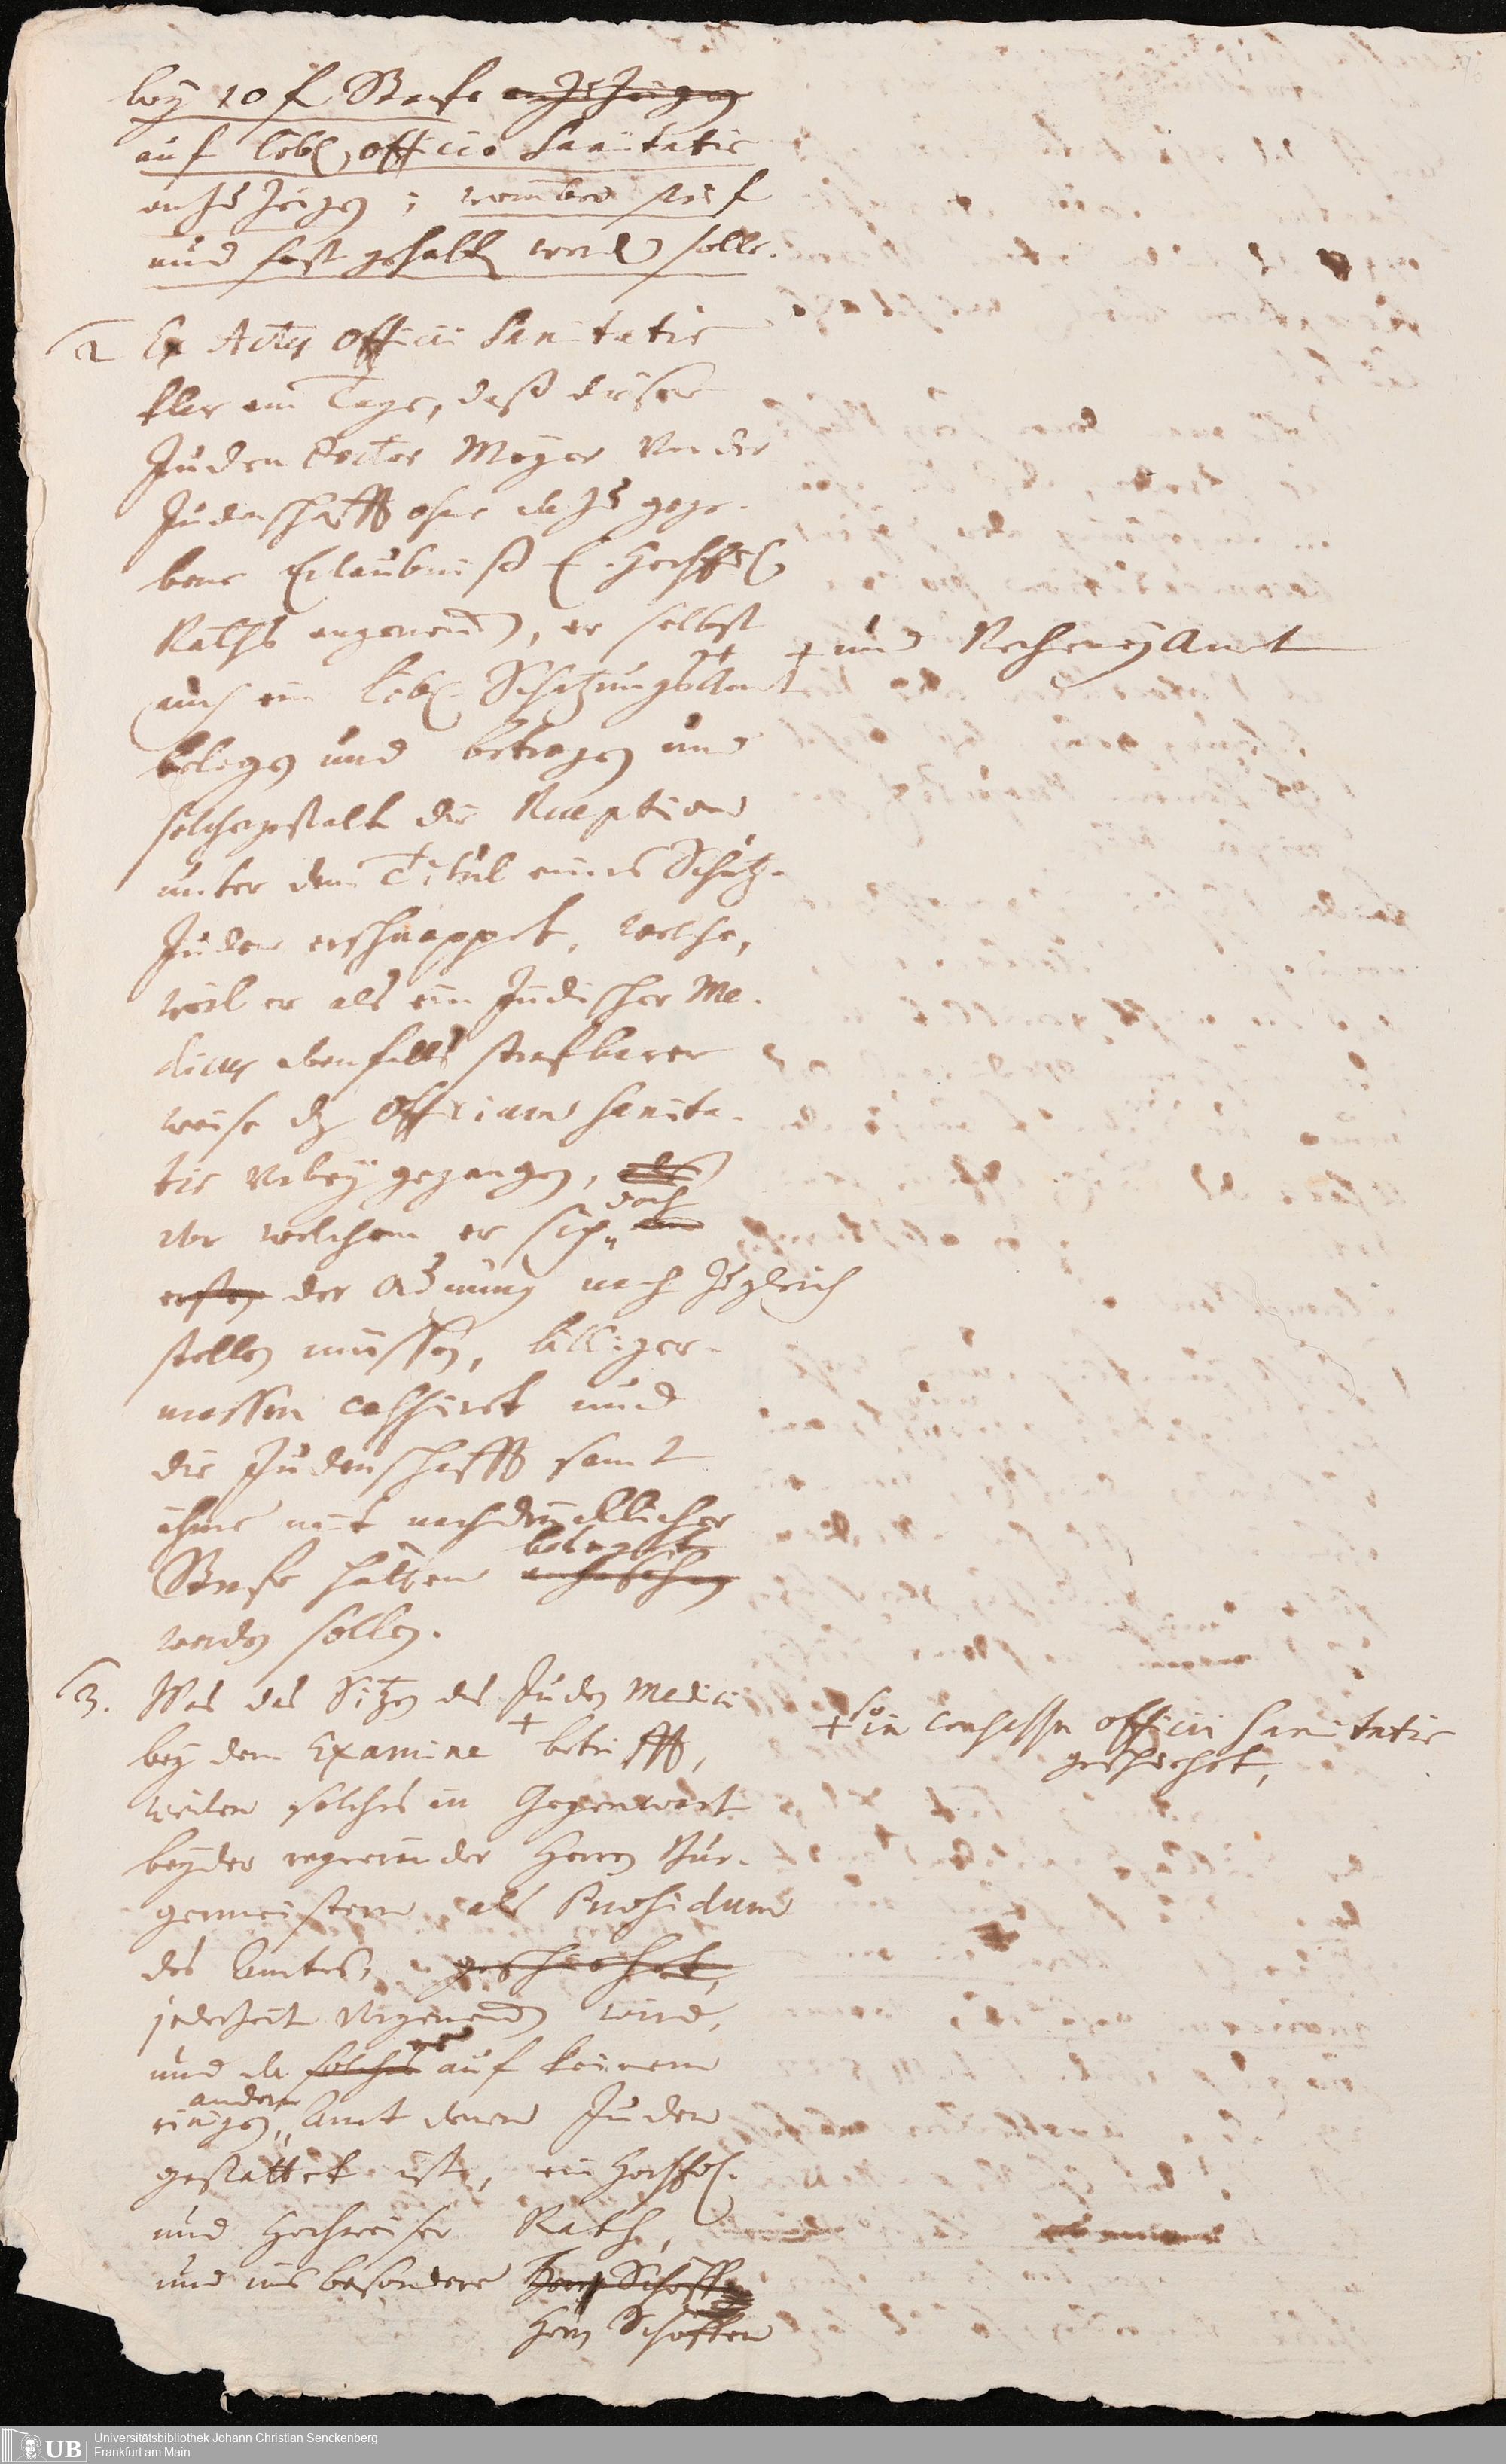 bey 10 f Strafe anzuzeigen
auf löbl. officio Sanitatis
anzuzeigen; worüber steif
und fest gehalten werden solle.
2 Ex Actis Officii Sanitatis
klar am Tage, daß dieser
Juden Doctor Meyer von der
Judenschafft ohne dazu gege-
bene Erlaubniß E. Hochedl.
Raths angenommen, er selbst
auch ein löbl. Schatzungs Amt +
+ und Recheney Amt
belogen und betrogen und
solchergestalt die Reception
unter dem Titul eines Schutz-
Juden erschnappet, welche,
weil er als ein Jüdischer Me-
dicus ebenfalls strafbarer
weise das Officium Sanita-
tis vorbey gegangen,
vor welchem er sich doch
ersten der Ordnung nach zugleich
stellen müssen, billiger-
massen cassiret und
die Judenschafft samt
ihme mit nachdrücklicher
Strafe hätten beleget
werden sollen.
3. Was das Sitzen des Juden Medici
bey dem Examine + betrifft,
+ so in consessu officii Sanitatis
geschiehet,
weilen solches in Gegenwart
beyder regierender Herren Bür-
germeistern als Praesidum
des Amtes, geschiehet,
jederzeit vorgenommen wird,
und da solches auf keinem
einigen andern Amt denen Juden
gestattet ist, ein Hochedl.
und Hochweiser Rath,
und ins besondere Herren Schöffen
Herren Schöffen
Universitätsbibliothek Johann Christian Senckenberg
Frankfurt am Main
UB